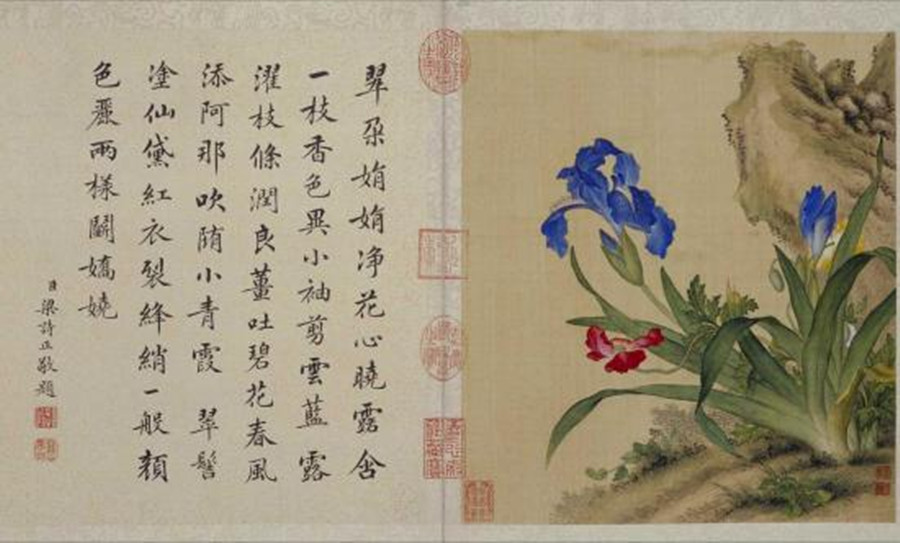 翠朶娟娟净花心曉露含
一枝香色異小袖剪雲藍 露
濯枝條潤良薑吐碧花春風
添阿那吹墮小青霞 翠髻
塗仙黛紅衣裂絳綃一般顏
色麗兩樣鬬嬌嬈
臣梁詩正敬題